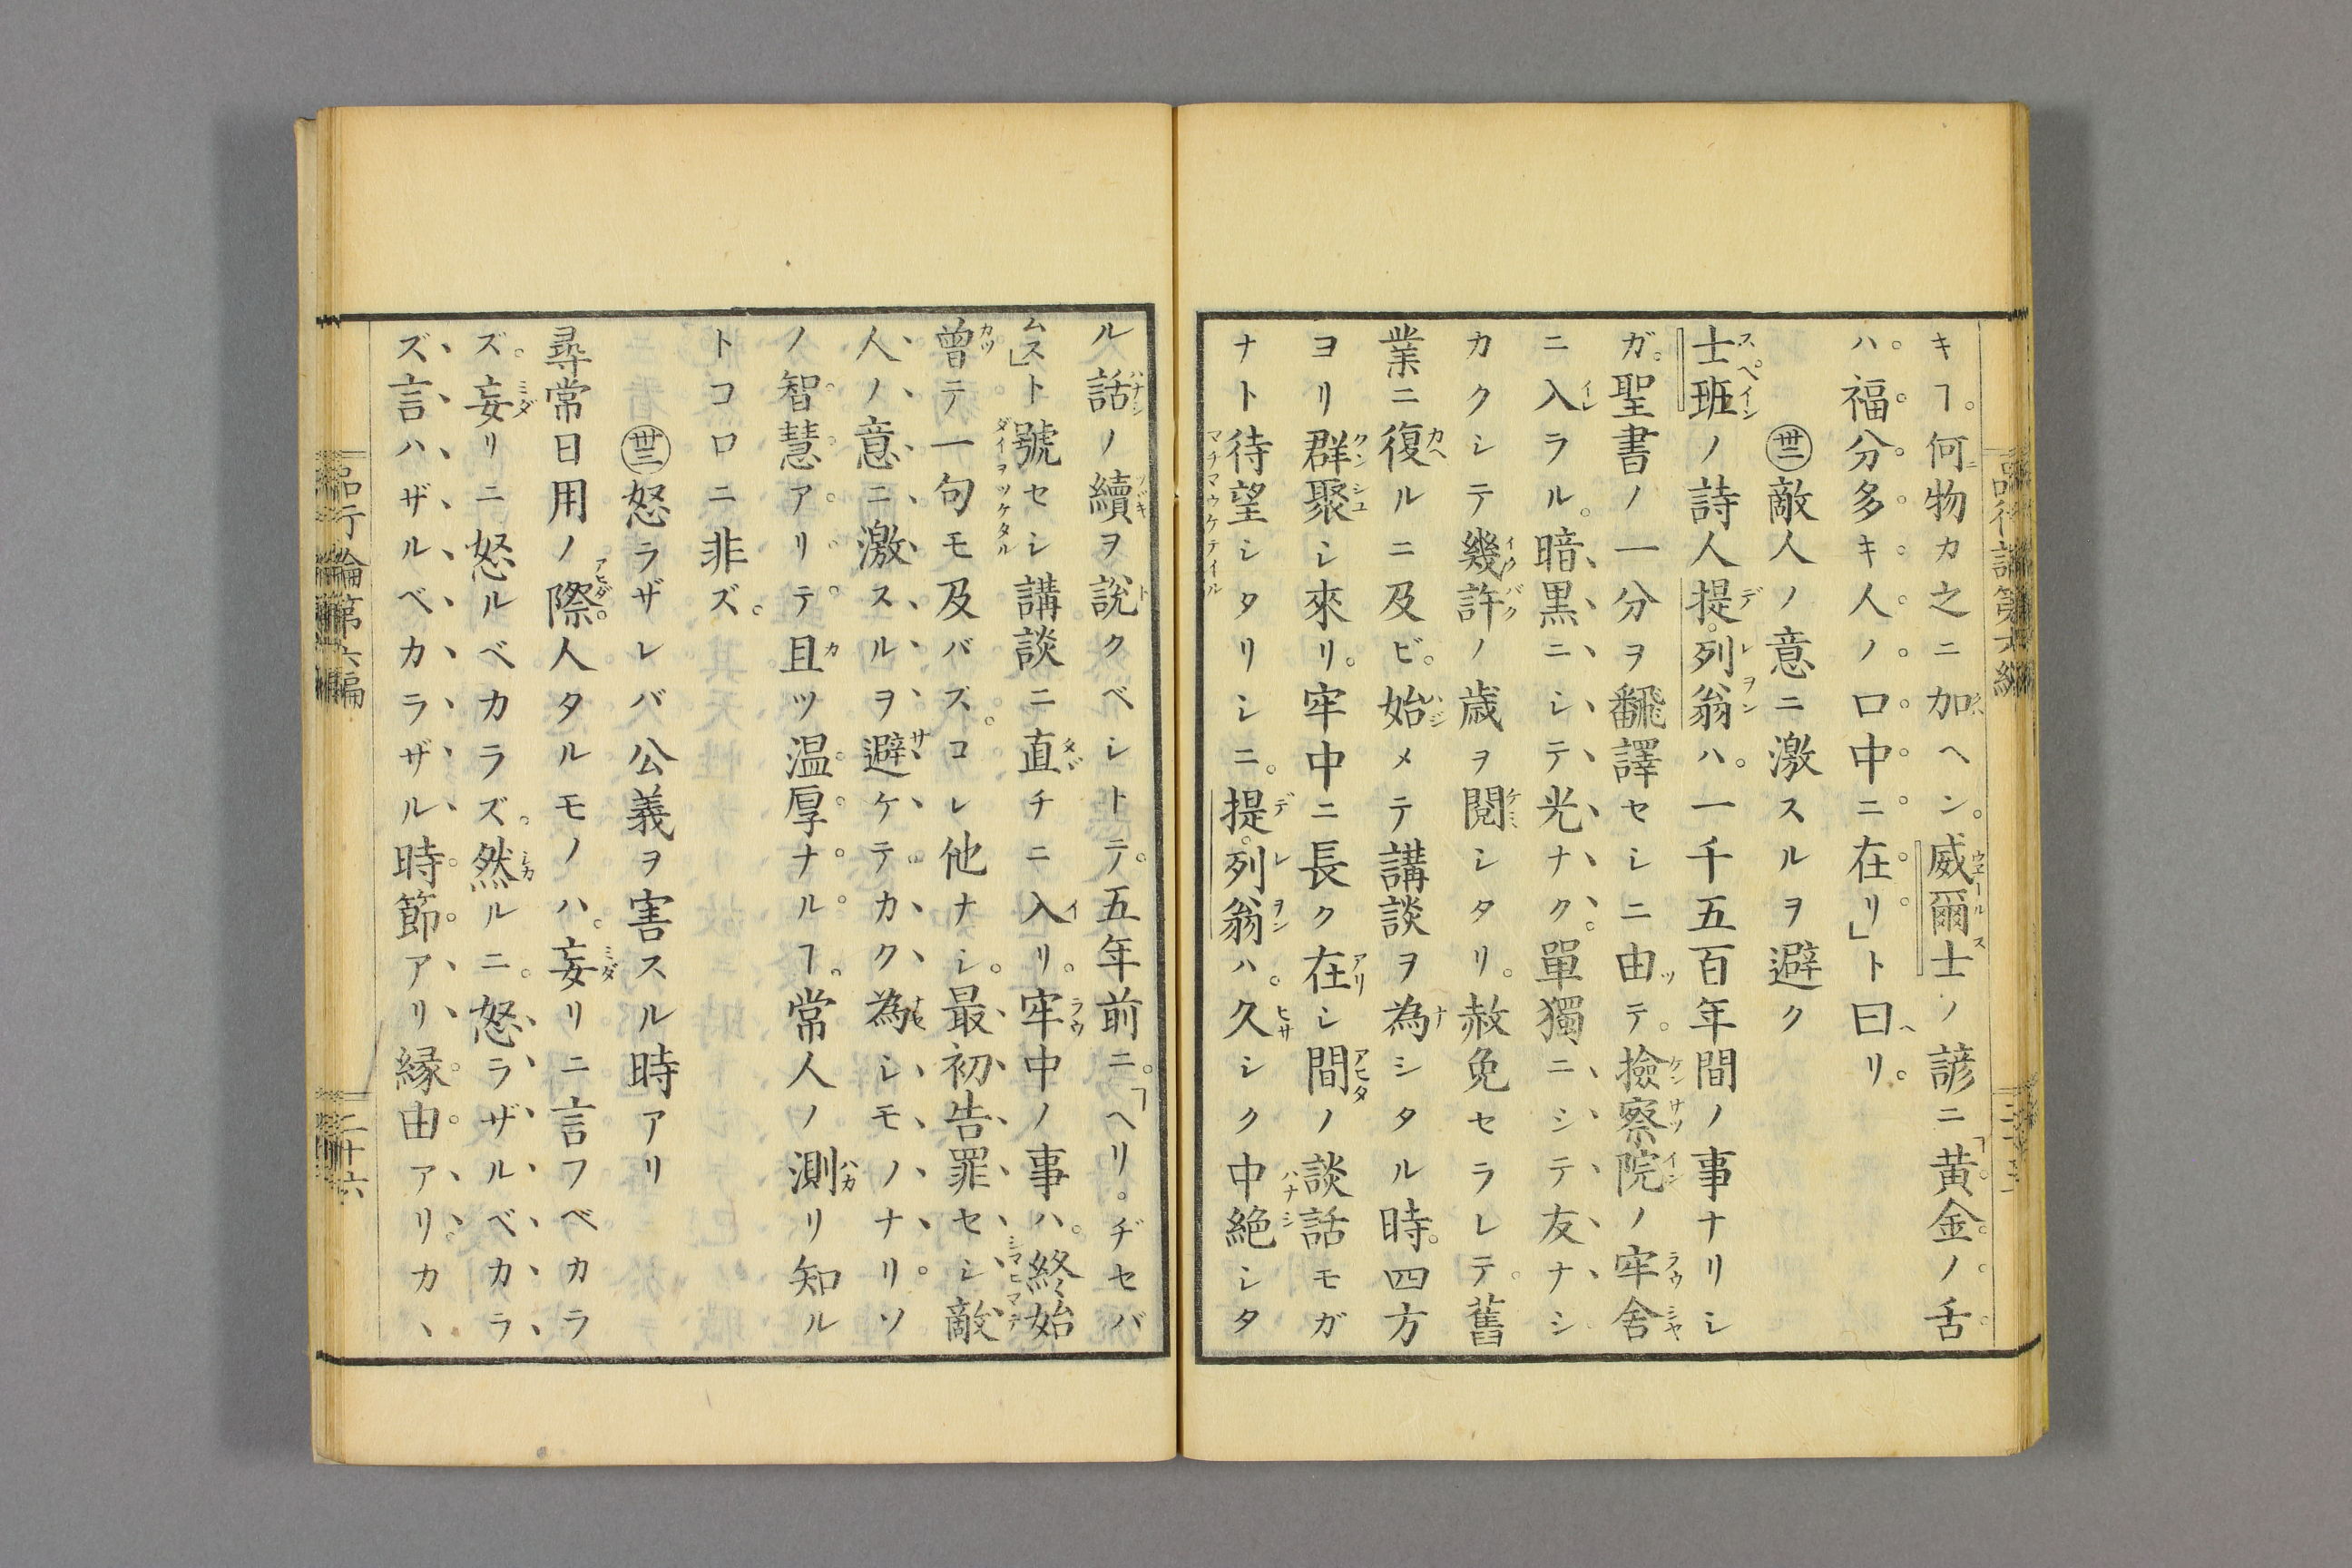 キヿ。何物カ之ニ加ヘン。威爾士ノ諺ニ「黄金ノ舌
ハ。福分多キ人ノ口中ニ在リ」ト曰リ
㊷敵人ノ意ニ激スルヲ避ク
士班ノ詩人提列翁ハ。一千五百年間ノ事ナリシ
ガ。聖書ノ一分ヲ飜譯セシニ由テ。撿察院ノ牢舍
ニ入ラル。暗黒ニシテ光ナク。單獨ニシテ友ナシ
カクシテ幾許ノ歳ヲ閲シタリ。赦免セラレテ。舊
業ニ復ルニ及ビ。始メテ講談ヲ為シタル時。四方
ヨリ群聚シ來リ。牢中ニ長ク在シ間ノ談話モガ
ナト待望シタリシニ。提列翁ハ。久シク中絶シタ
ル話ノ續ヲ說クベシトテ。五年前ニ。「ヘリ。ヂセバ
ムス」ト號セシ講談ニ直チニ入リ。牢中ノ事ハ。終始
曾テ一句モ及バズ。コレ他ナシ。最初告罪セシ敵
人ノ意ニ激スルヲ避ケテカク為シモノナリソ
ノ智慧アリテ且ツ温厚ナルヿ。常人ノ測リ知ル
トコロニ非ズ。
怒ラザレバ公義ヲ害スル時アリ
尋常日用ノ際。人タルモノハ。妄リニ言フベカラ
ズ。妄リニ怒ルベカラズ。然ルニ。怒ラザルベカラ
ズ言ハザルベカラザル時節アリ縁由アリ。カヽ
品行論第六編
二十六